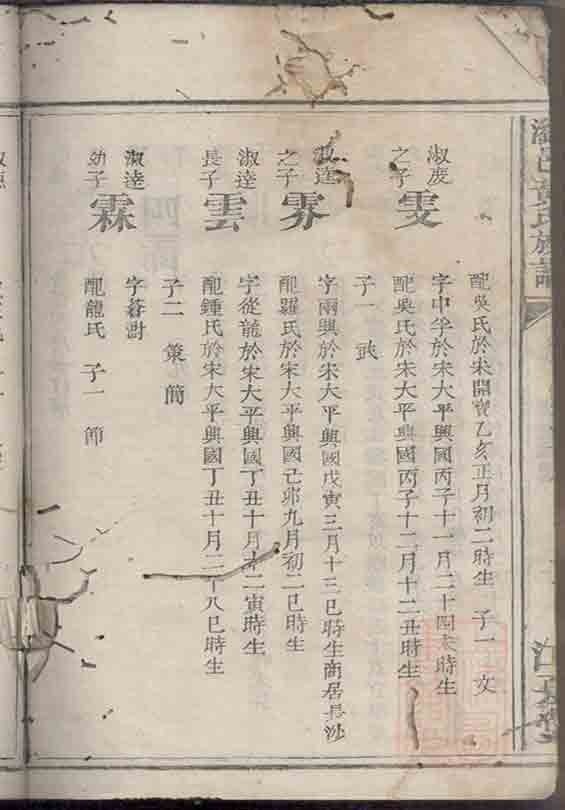 配吳氏於宋開寶乙亥正月初二時生 子一 文
淑慶
之子
雯
字中孚於宋太平興國丙子十一月二十四未時生
配吳氏於宋大平興國丙子十二月十二丑時生
子一 斌
淑逵
之子
霁
字雨興於宋大平興國戊寅三月十三巳時生商居長沙
配羅氏於宋大平興國己卯九月初二巳時生
淑逵
長子
雲
字從龍於宋大平興國丁丑十月十二寅時生
配鍾氏於宋大平興國丁丑十月二十八巳時生
子二 策 簡
淑逵
幼子
霖
字蒼澍
配龍氏 子一 節
氏族譜
江夏堂